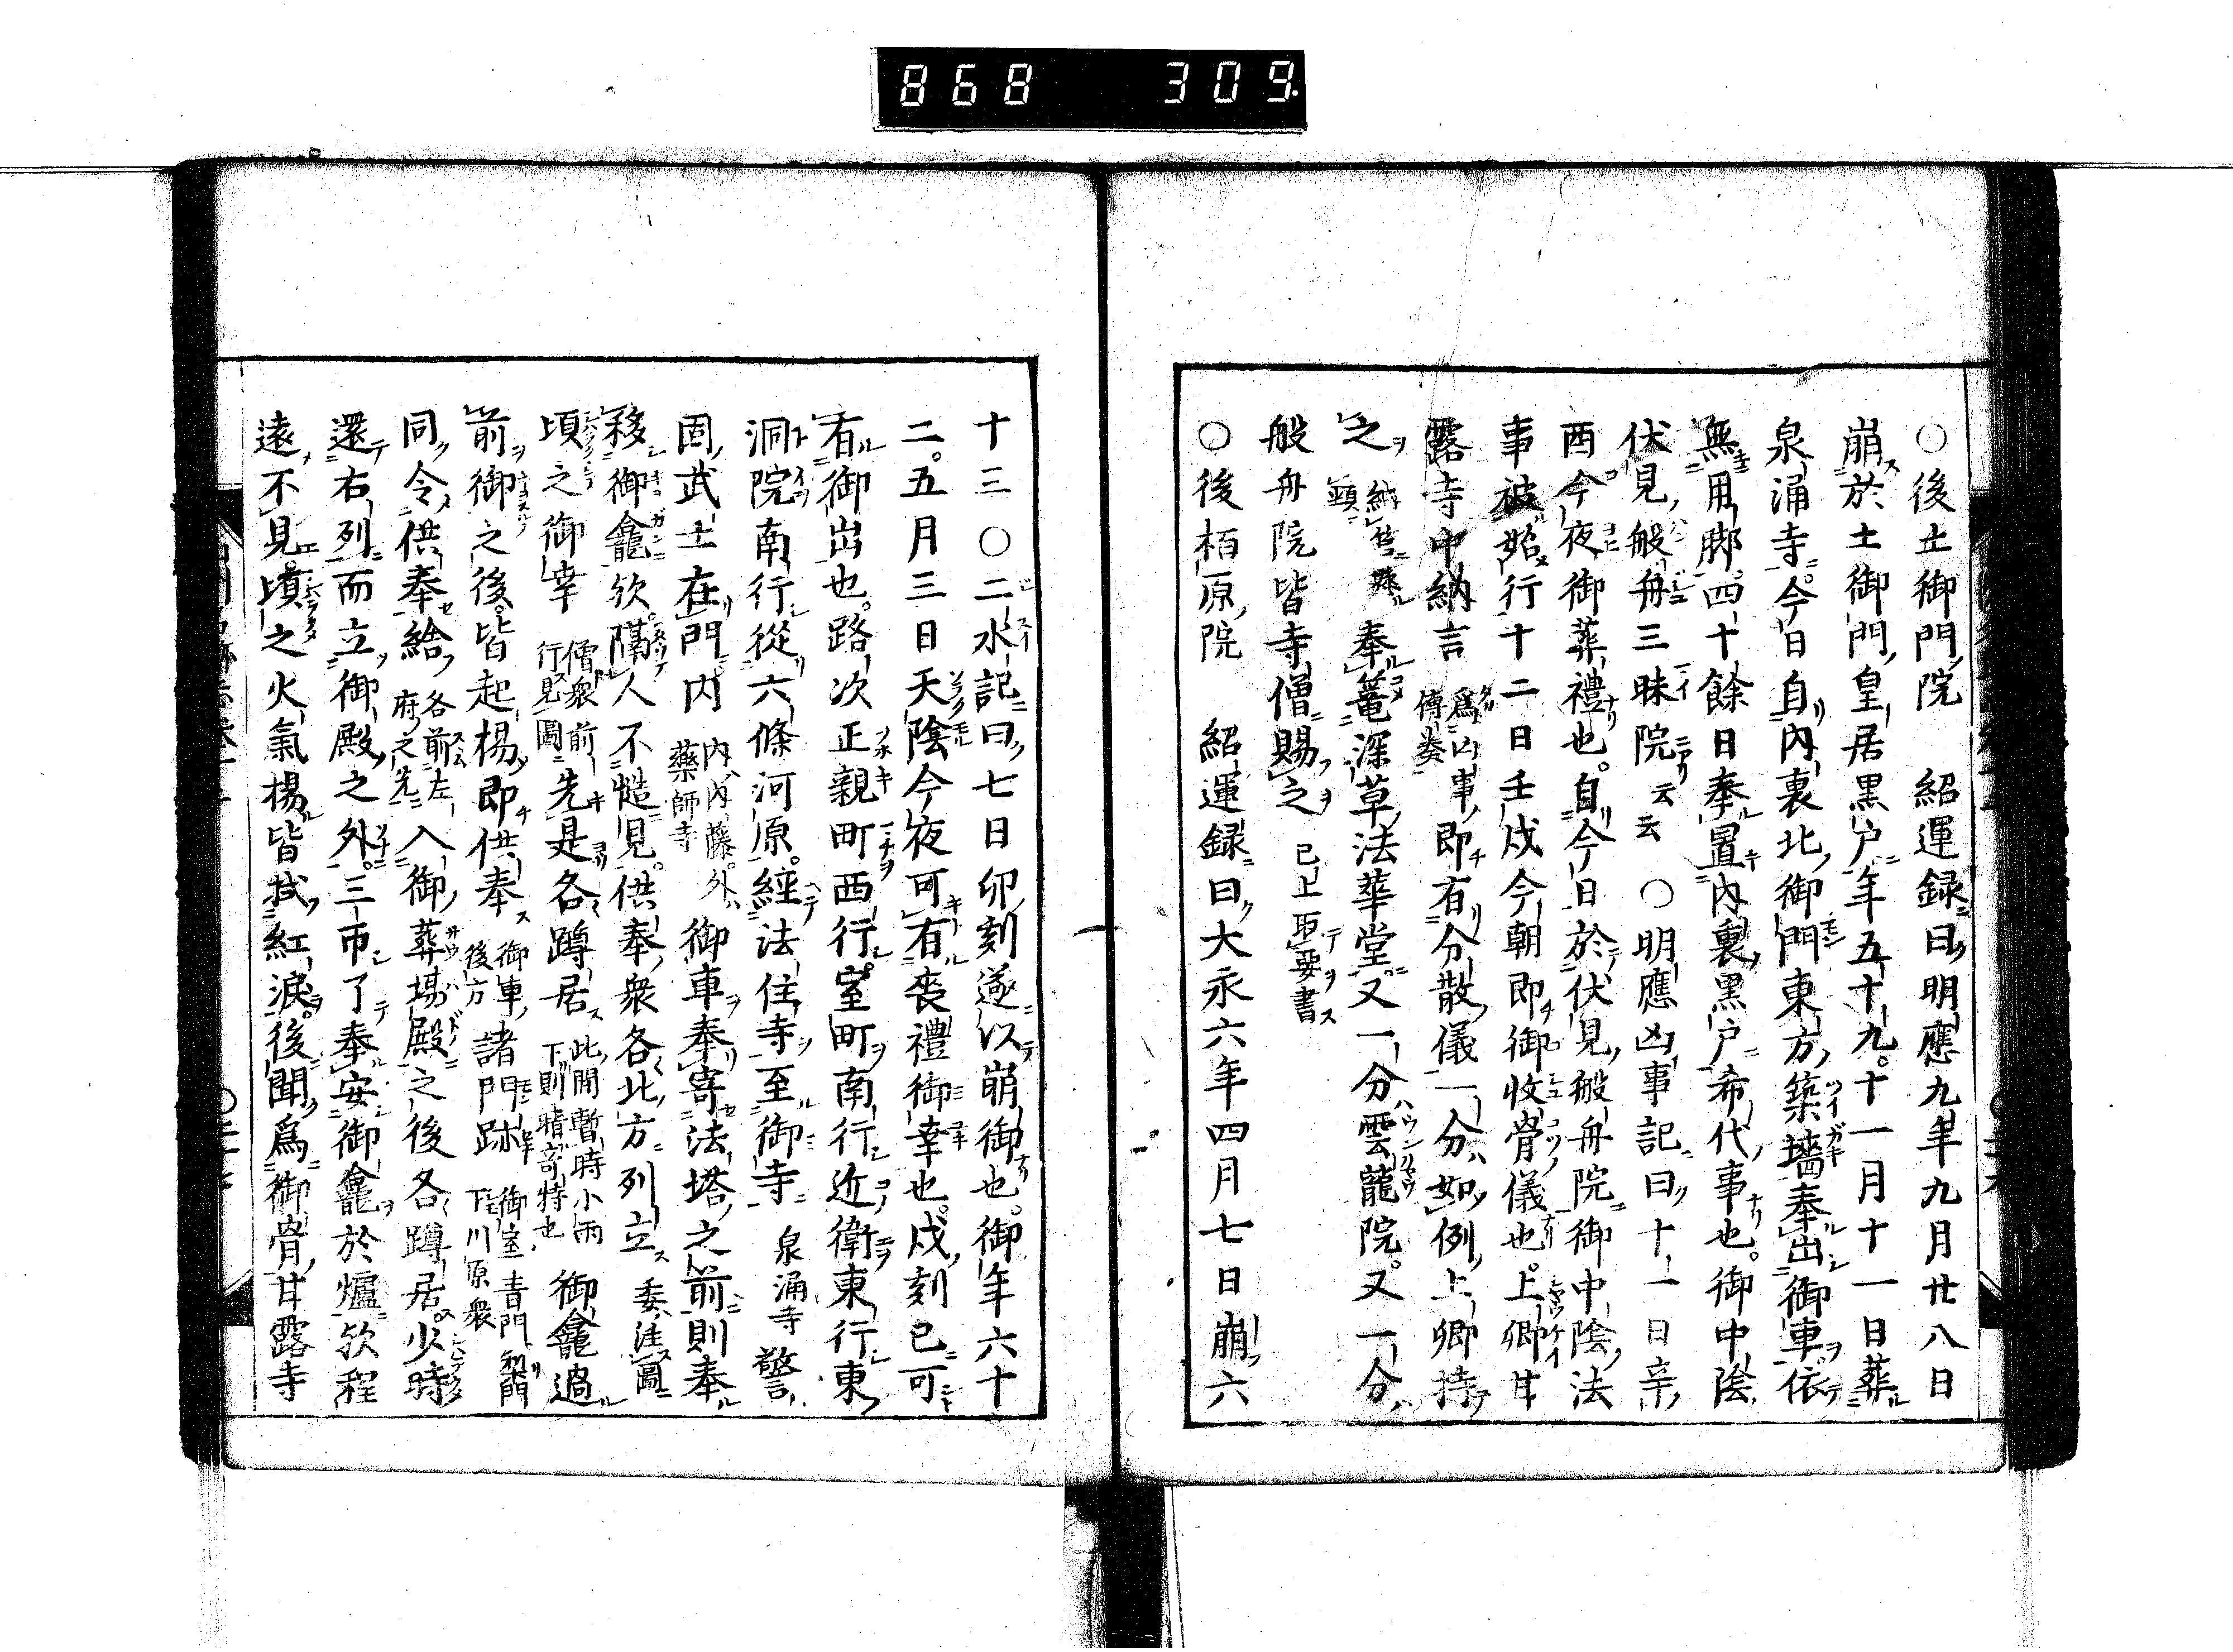 868 309
○後土御門院 紹運録曰明應九年九月廿八日
崩於土御門皇居黒戸年五十九。十一月十一日葬
泉涌寺今日自内裏北御門東方築墻奉出御車依
無用脚四十餘日奉置内裏黒戸希代事也。御中陰
伏見般舟三昧院云云 ○明應凶事記曰十一日辛
酉今夜御葬禮也。自今日於伏見般舟院御中陰法
事被始行十二日壬戌今朝即御收骨儀也。上卿甘
露寺中納言 爲凶事傳奏 即有分散儀一分如例上卿持
之 奉篭深草法華堂又一分雲龍院。又一分
般舟院皆寺僧賜之 已上取要書
○後栢原院 紹運録曰大永六年四月七日崩六
十三○二水記曰七日卯刻遂以崩御也。御年六十
二。五月三日天陰今夜可有喪禮御幸也。戌刻已可
有御出也。路次正親町西行室町南行近衛東行東
洞院南行從六條河原。經法住寺至御寺 泉涌寺 警
固武士在門内 内内藤。外藥師寺 御車奉寄法塔之前則奉
移御龕欤。隔人不慥見。供奉衆各北方列立 委注圖
頃之御幸 僧衆前行見圖 先是各蹲居 此間暫時小雨下則晴奇特也 御龕過
前御之後。皆起揚即供奉 御車後方 諸門跡 御室青門梨門下川原衆
同令供奉給 各前左府之先 入御葬場殿之後各蹲居。少時
還右列而立御殿之外。三帀了奉安御龕於爐欤程
遠不見。頃之火氣揚皆拭紅涙。後聞爲御骨甘露寺